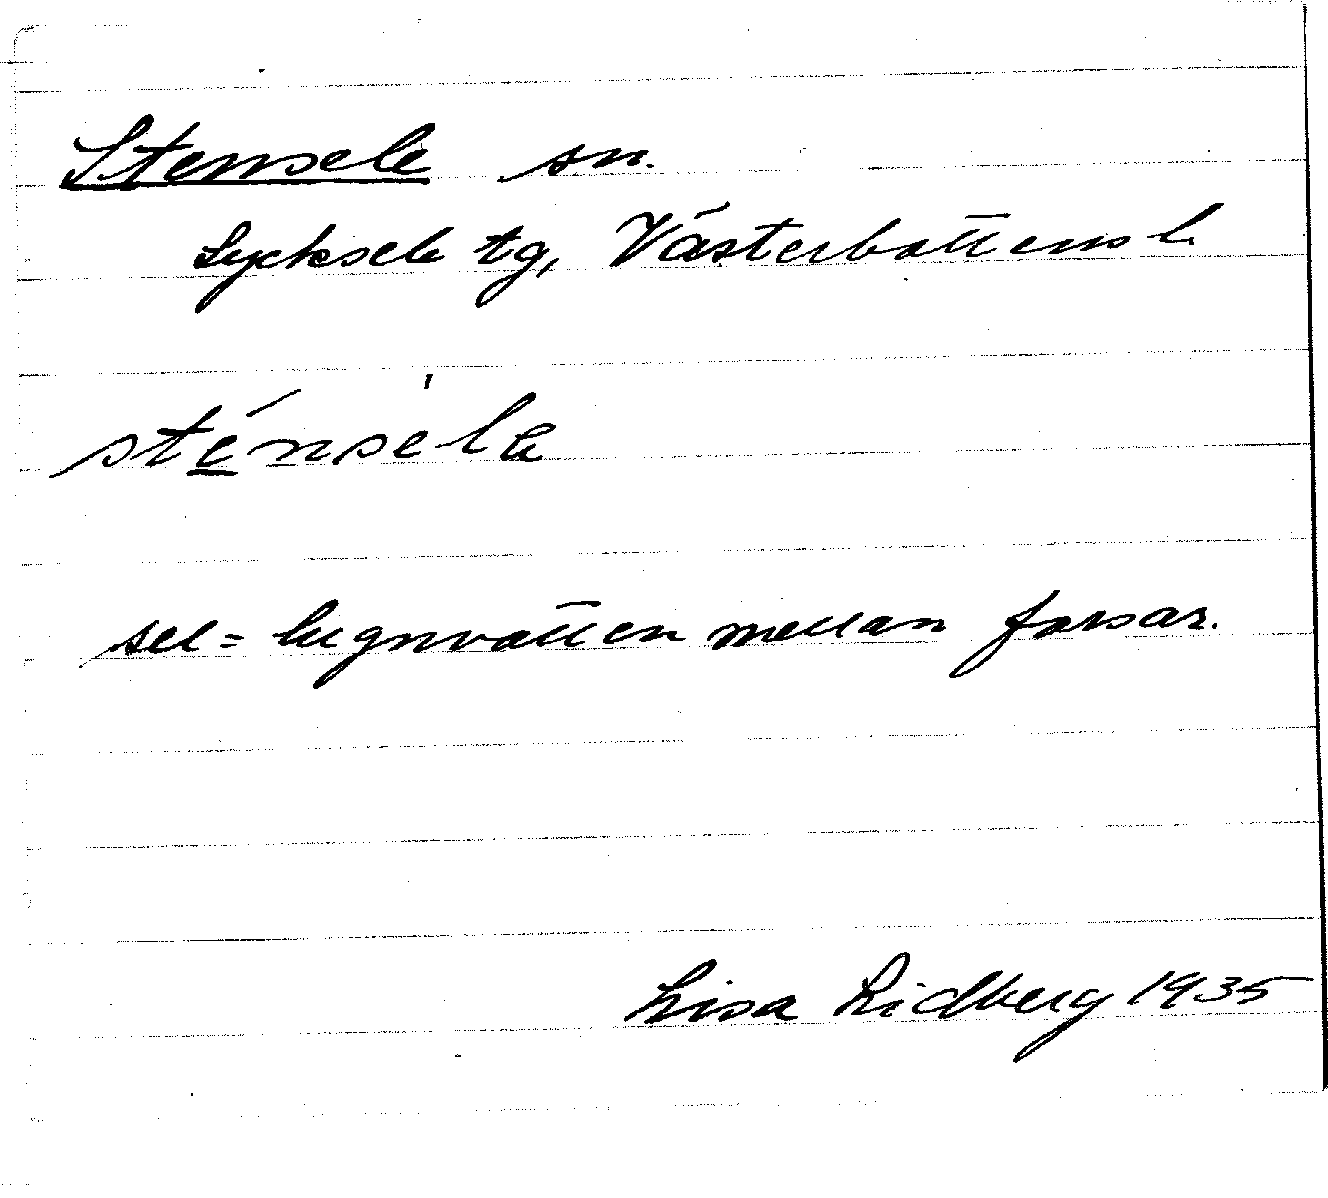 Stensele sn.
Lycksele tg, Västerbottens l.
sténsela
sel = lugnvatten mellan forsar.
Lisa Lidberg 1935